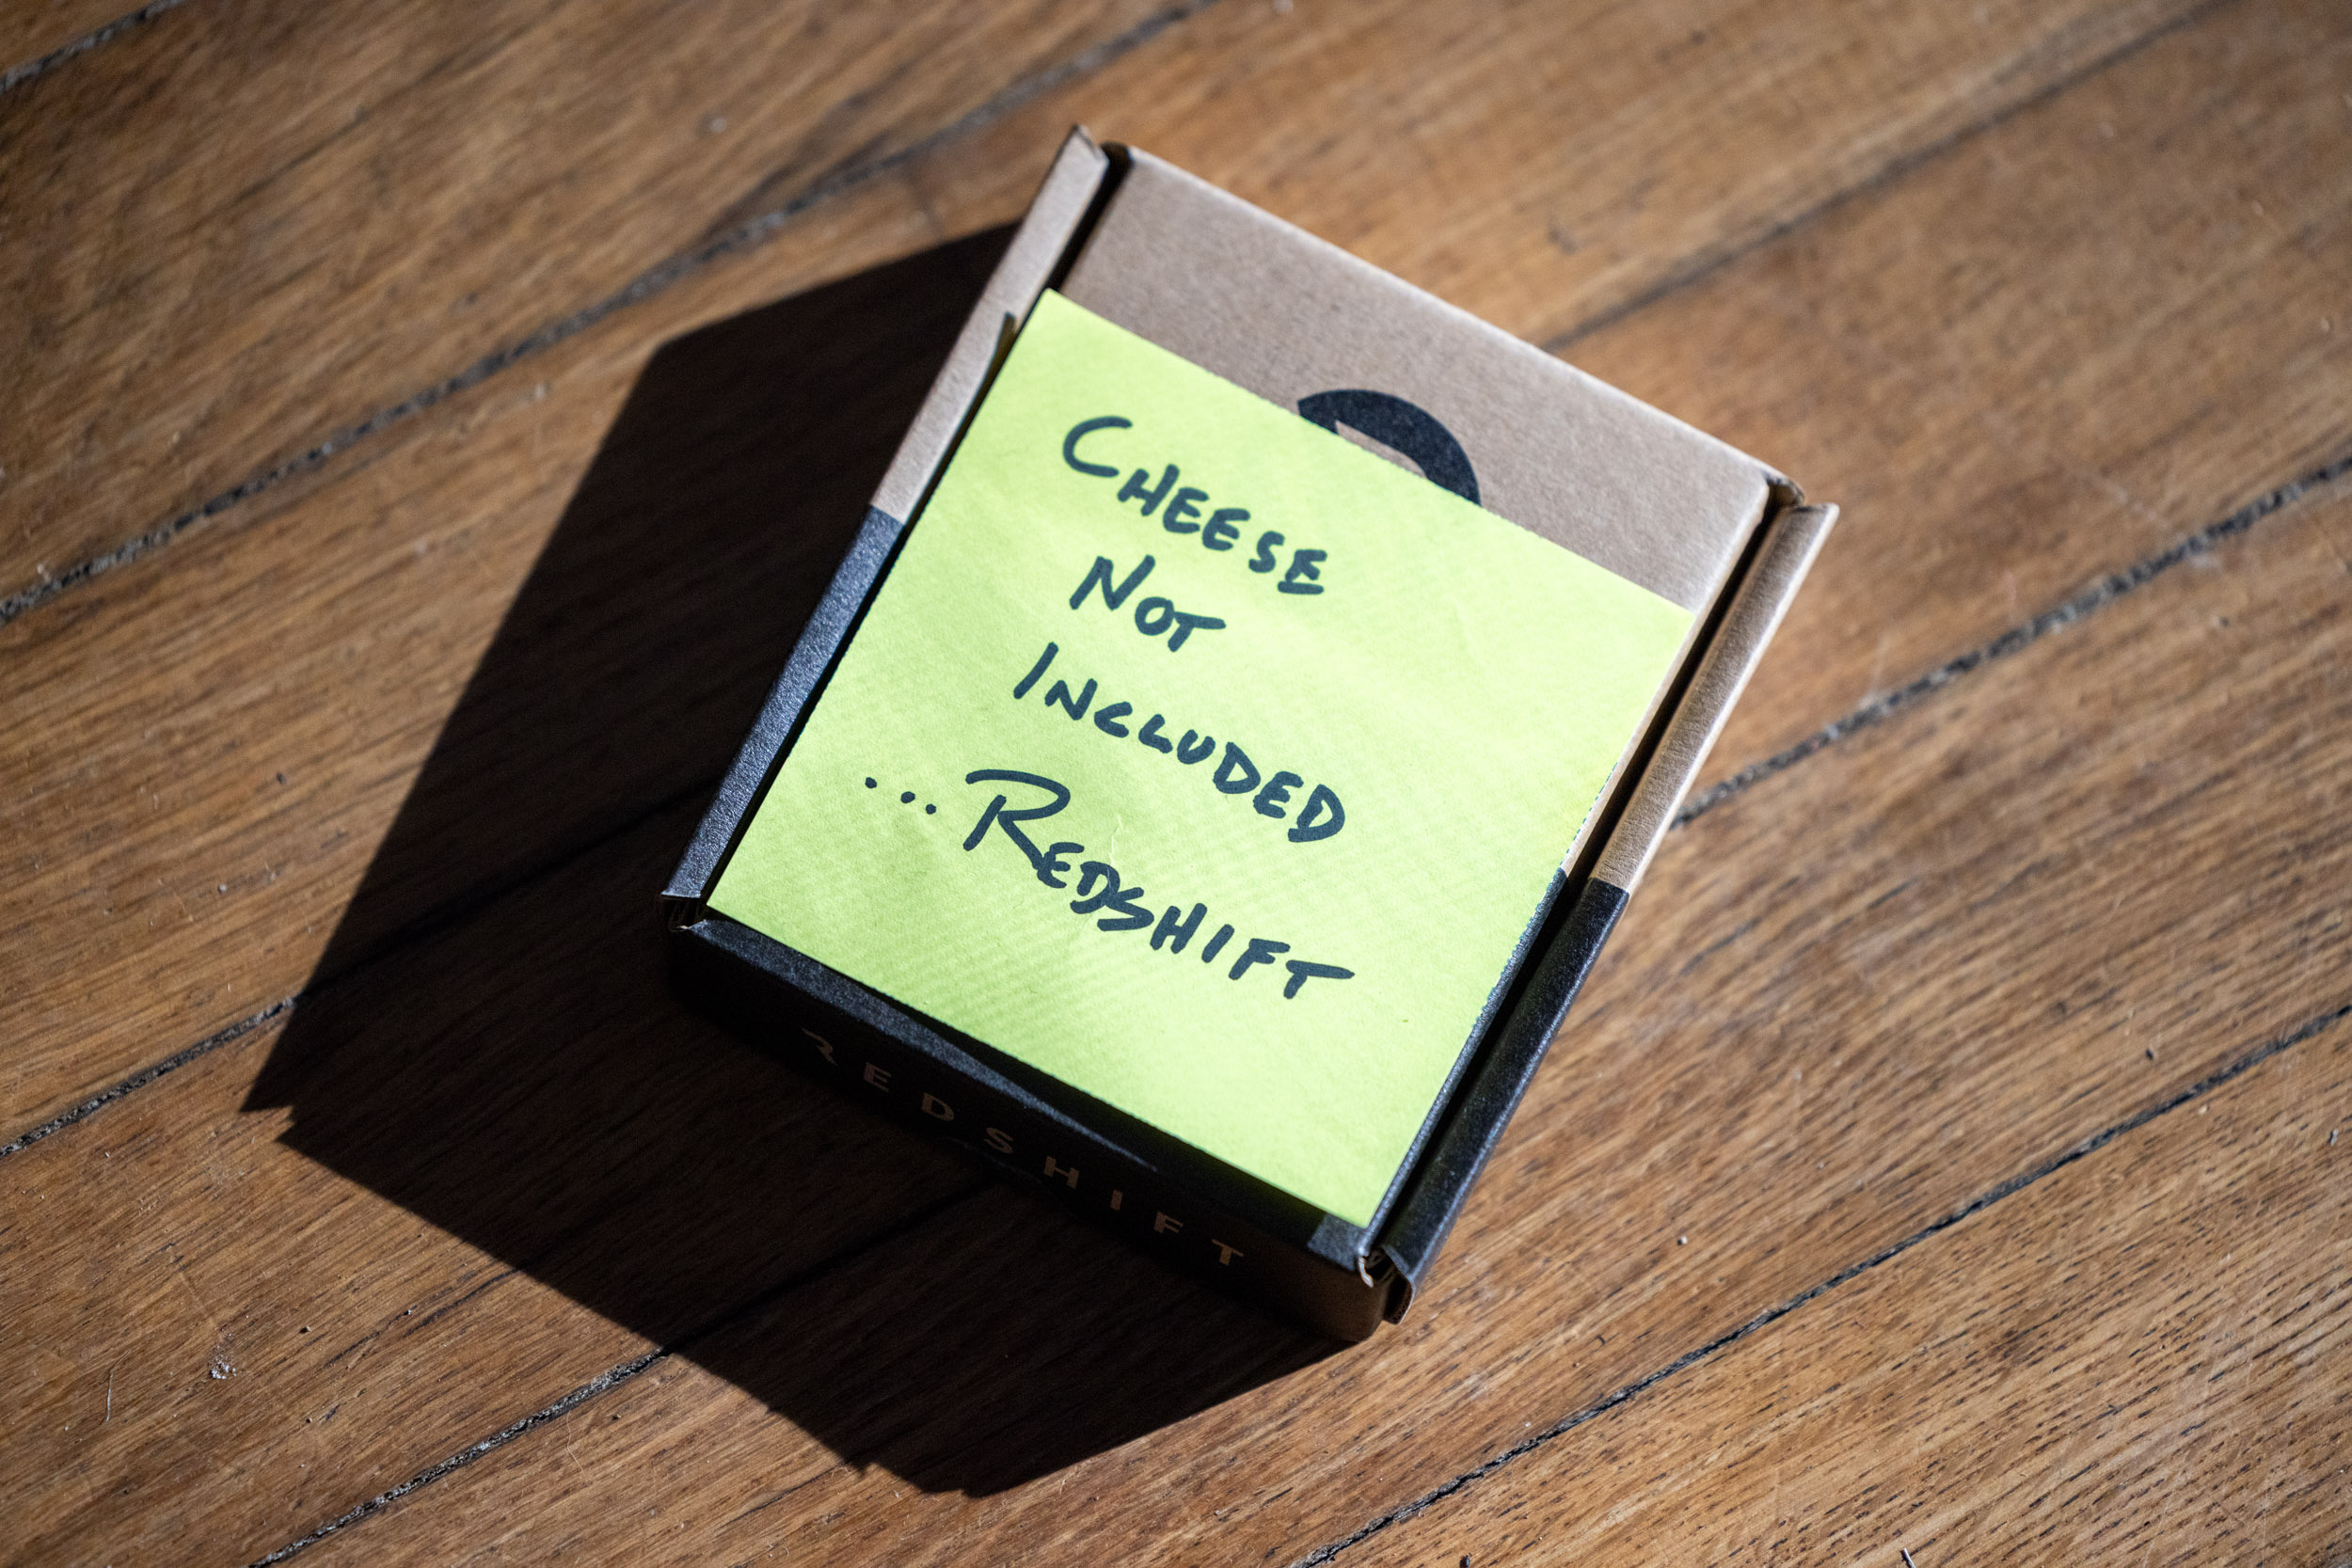 CHEESE
NOT
INCLUDED
...REDSHIFT
REDSHIFT